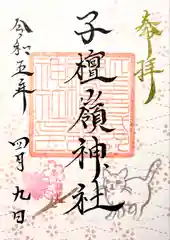 奉拝
子檀嶺神社
令和五年
四月九日